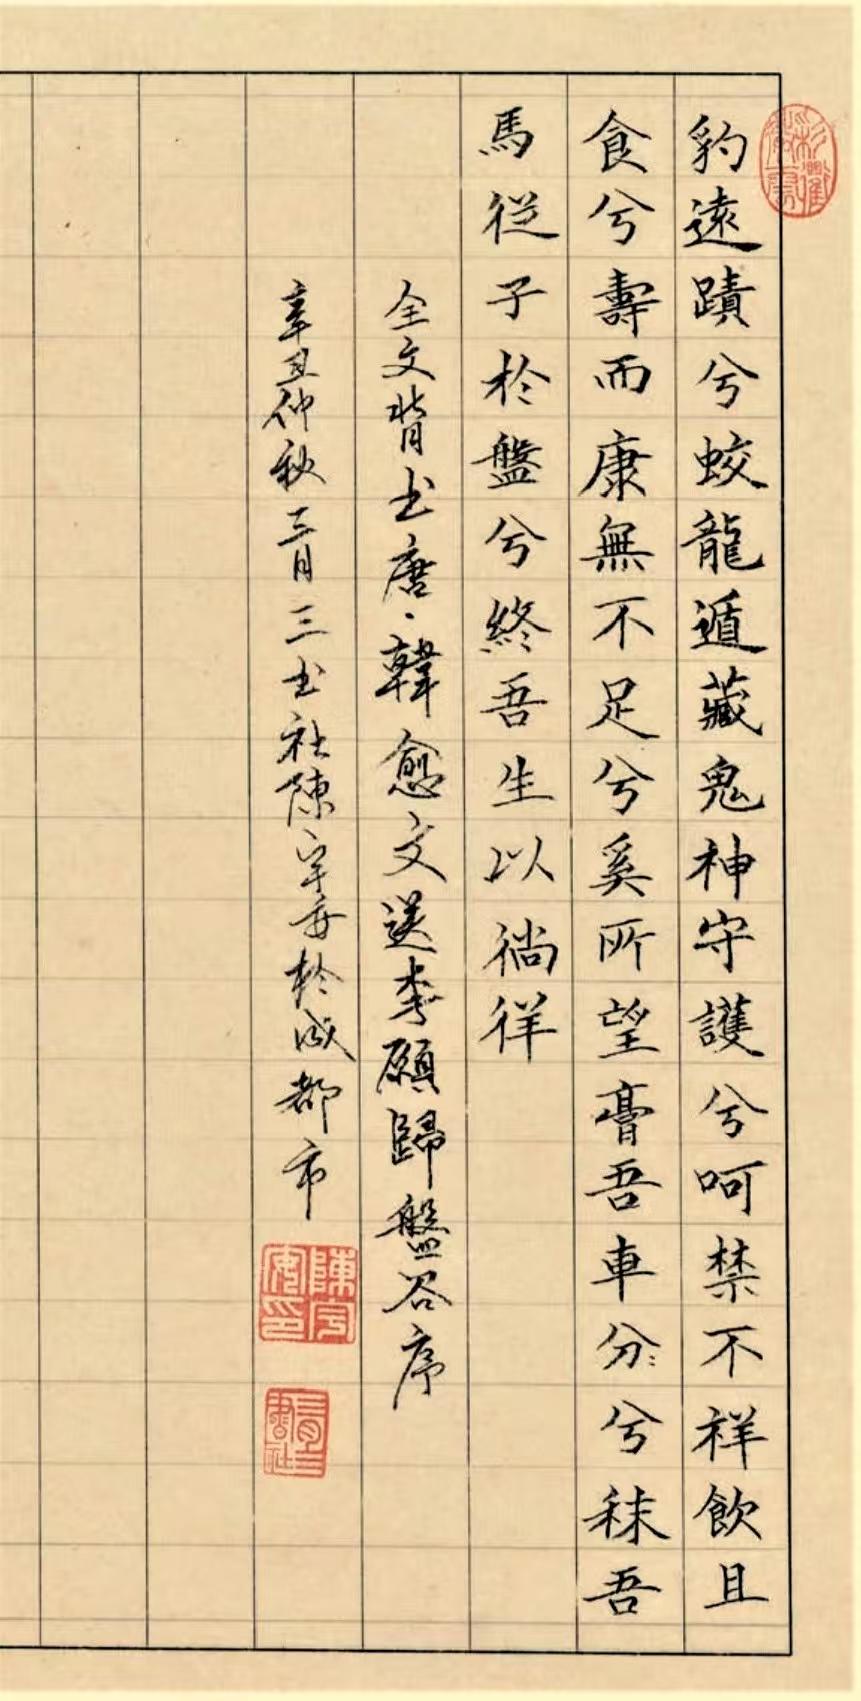 豹遠蹟兮蛟龍遁藏鬼神守護兮呵禁不祥飲且
食兮壽而康無不足兮奚所望膏吾車分⺀兮秣吾
馬從子於盤兮終吾生以徜徉
全文背書唐、韓愈文送李願歸盤谷序
辛丑仲秋三月三书社陳宇安於成都市